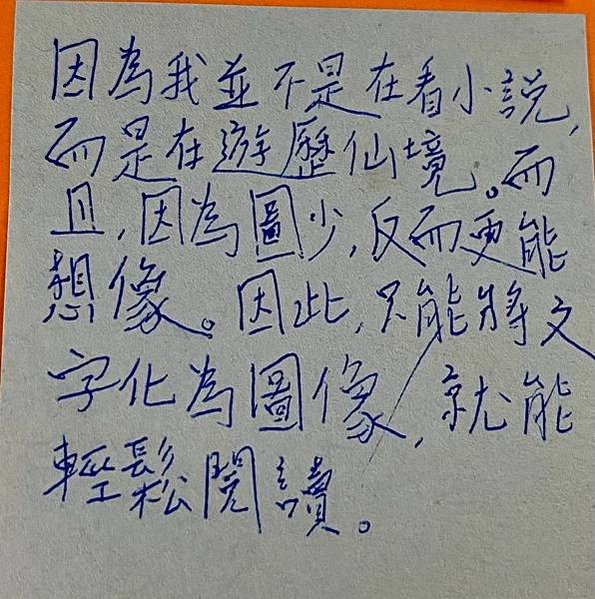 因為我並不是在看小說,
而是在遊歷仙境。而
且,因為圖少,反而更能
想像。因此,只能將文
字化為圖像,就能
輕鬆閱讀。